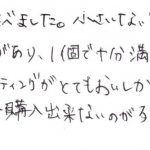 べました。小さいない
があり、1個で十分満
ティングがとてもおいしか
購入出来ないのが